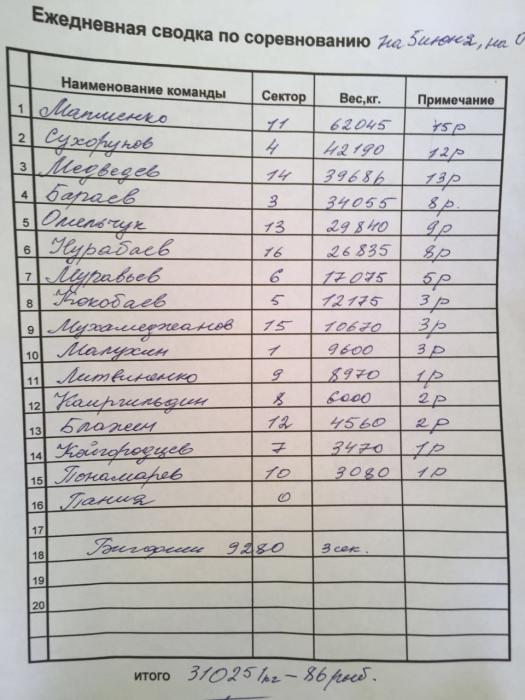 Ежедневная сводка по соревнованию на 5 июня, на 0
Наименование команды Сектор Вес,кг. Примечание
1 11 62045 15р
2 Сухорупов 4 42190 12р
3 Медведев 14 39686 13р
4 Бараев 3 34055 8р.
5 Омельчук 13 29840 9р
6 Нурабаев 16 26835 8р
7 Муравьев 6 17075 5р
8 Кокобаев 5 12175 3р
9 Мухамеджанов 15 10670 3р
10 Малухин 1 9600 3р
11 Литвиненко 9 8970 1р
12 Каиргильдин 8 6000 2р
13 12 4560 2р
14 Койгородцев 7 3470 1р
15 Пономарев 10 3080 1р
16 0
17
18 9280 3 сек.
19
20
итого 310251кг – 86 рыб.